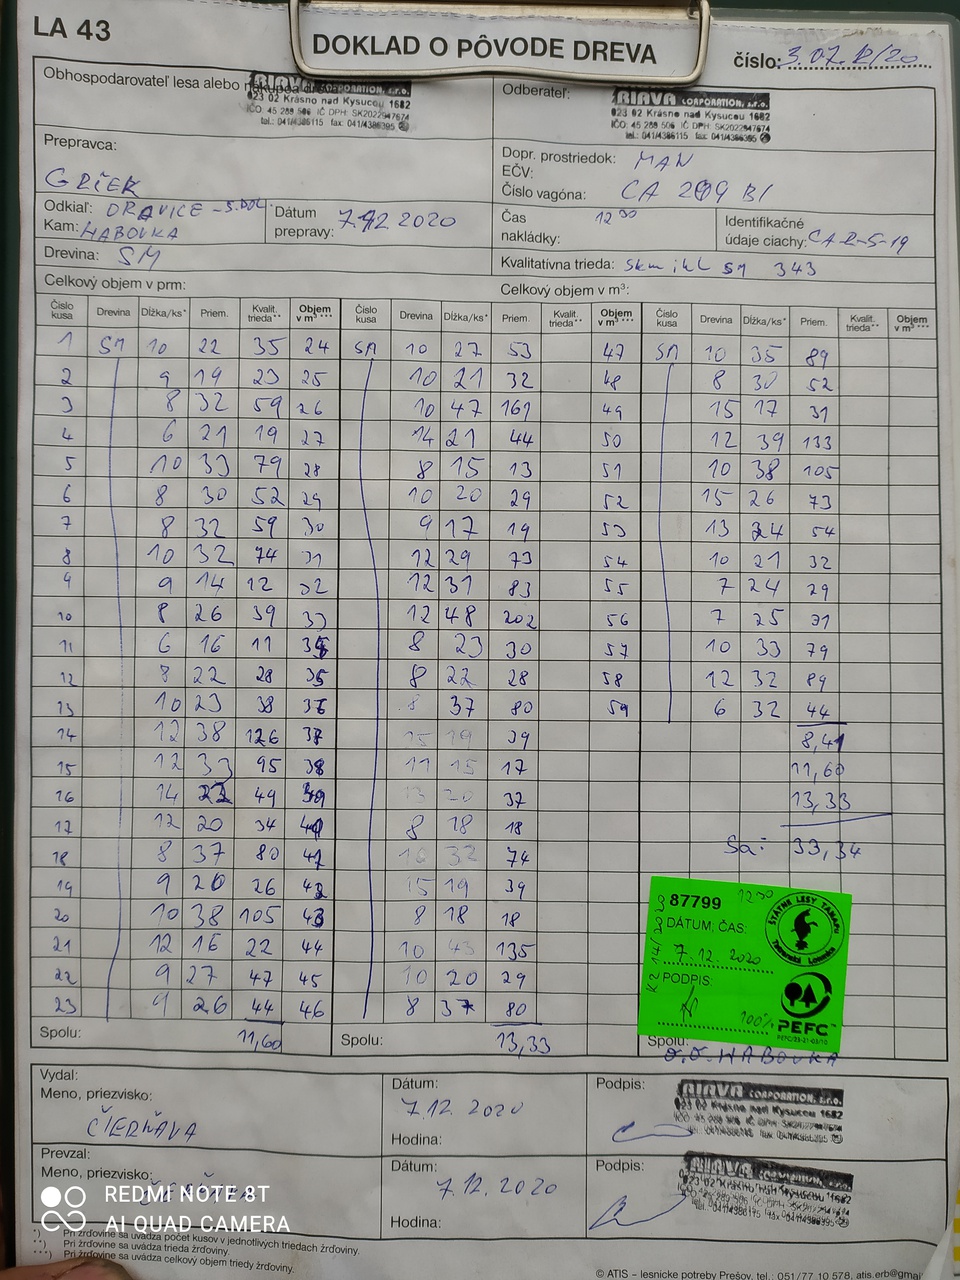 LA 43
DOKLAD O PÔVODE DREVA
číslo: 3.07.12/20
Obhospodarovateľ lesa alebo
RIAVA CORPORATION, s.r.o.
023 02 Krásno nad Kysucou 1682
IČO: 45 289 506 IČ DPH: SK2022947674
tel.: 041/4386115 fax: 041/4386395
Odberateľ:
RIAVA CORPORATION, s.r.o.
023 02 Krásno nad Kysucou 1682
IČO: 45 289 506 IČ DPH: SK2022947674
tel.: 041/4386115 fax: 041/4386395
Prepravca:
GRIEK
Dopr. prostriedok: MAN
EČV:
Číslo vagóna: CA 209 BI
Odkiaľ: ORAVICE - S.DOL.
Kam: HABOVKA
Dátum prepravy: 7.12 2020
Čas nakládky: 12 30
Identifikačné údaje ciachy: CA 2-5-19
Drevina: SM
Kvalitatívna trieda: SM 343
Celkový objem v prm:
Celkový objem v m³:
Číslo kusa Drevina Dĺžka/ks* Priem. Kvalit. trieda** Objem v m³ *** Číslo kusa Drevina Dĺžka/ks* Priem. Kvalit. trieda** Objem v m³ *** Číslo kusa Drevina Dĺžka/ks* Priem. Kvalit. trieda** Objem v m³ ***
1 SM 10 22 35 24 SM 10 27 53 47 SM 10 35 89
2 9 19 23 25 10 21 32 48 8 30 52
3 8 32 59 26 10 47 161 49 15 17 31
4 6 21 19 27 14 21 44 50 12 39 133
5 10 33 79 28 8 15 13 51 10 38 105
6 8 30 52 29 10 20 29 52 15 26 73
7 8 32 59 30 9 17 19 53 13 24 54
8 10 32 74 31 12 29 73 54 10 21 32
9 9 14 12 32 12 31 83 55 7 24 29
10 8 26 39 33 12 48 202 56 7 25 31
11 6 16 11 34 8 23 30 57 10 33 79
12 8 22 28 35 8 22 28 58 12 32 89
13 10 23 38 36 8 37 80 59 6 32 44
14 12 38 126 37 15 19 39 8,41
15 12 33 95 38 11 15 17 11,60
16 14 22 49 39 13 20 37 13,33
17 12 20 34 40 8 18 18
18 8 37 80 41 10 32 74 Sa: 33,34
19 9 20 26 42 15 19 39
20 10 38 105 43 8 18 18
21 12 16 22 44 10 43 135
22 9 27 47 45 10 20 29
23 9 26 44 46 8 37 80
Spolu: 11,60 Spolu: 13,33 Spolu:
87799 12 30
ŠTÁTNE LESY TANAPU
Tatranská Lomnica
DÁTUM, ČAS:
7.12. 2020
PODPIS:
100%
PEFC™
O.O. HABOVKA
Vydal:
Meno, priezvisko:
ČIERŇAVA
Dátum:
7.12. 2020
Hodina:
Podpis:
RIAVA CORPORATION, s.r.o.
023 02 Krásno nad Kysucou 1682
Prevzal:
Meno, priezvisko:
Dátum:
7.12. 2020
Hodina:
Podpis:
023 02 Krásno nad Kysucou 1682
REDMI NOTE 8T
AI QUAD CAMERA
*) Pri žrďovine sa uvádza počet kusov v jednotlivých triedach žrďoviny.
**) Pri žrďovine sa uvádza trieda žrďoviny.
***) Pri žrďovine sa uvádza celkový objem triedy žrďoviny.
© ATIS – lesnícke potreby Prešov, tel.: 051/77 10 578, atis.erb@gmai